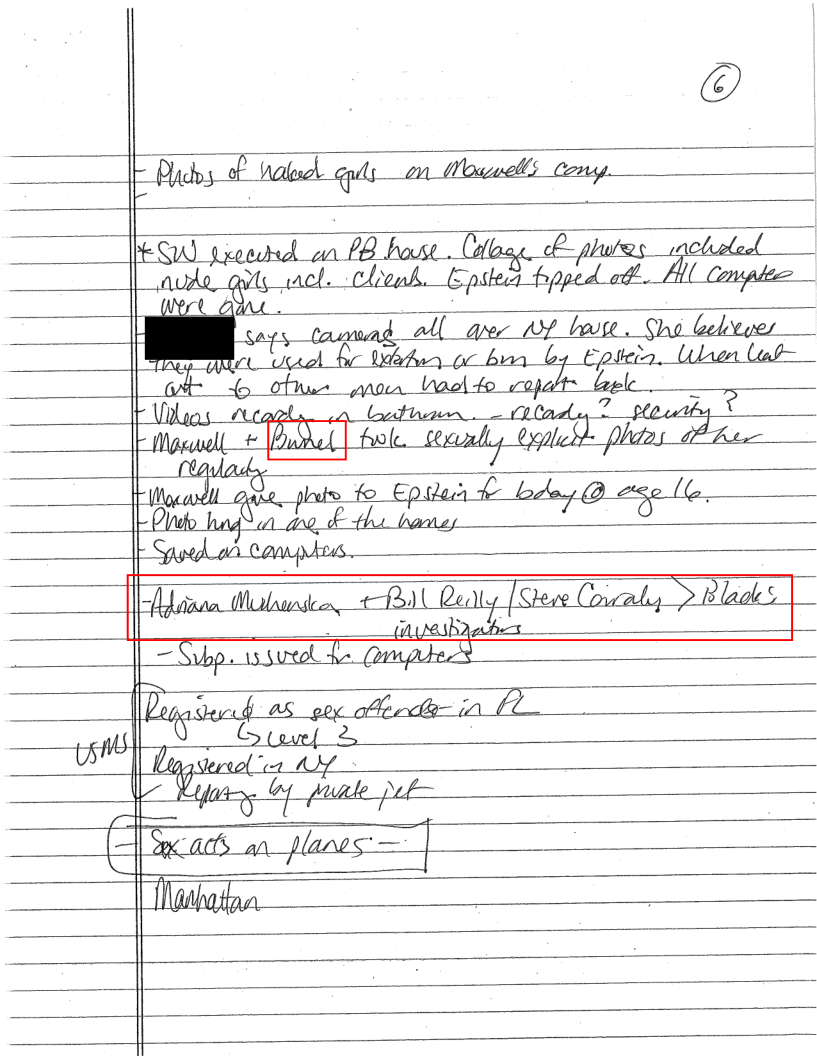 6
- Photos of naked girls on Maxwell's comp.
-
* SW executed on PB house. Collage of photos included
nude girls incl. clients. Epstein tipped off. All computers
were gone.
says cameras all over NY house. She believes
they were used for extortion or bm by Epstein. When lent
out to other men had to report back.
- Videos recordg in bathroom. - recordg? security?
- Maxwell + took sexually explicit photos of her
regularly
- Maxwell gave photo to Epstein for bday @ age 16.
- Photo hung in one of the homes
- Saved on computers.
- Adriana + Bill Reilly / Steve > Black's
investigators
- Subp. issued for computers
Registered as sex offender in FL
↳ Level 3
USMS
Registered in NY
by private jet
- Sex acts on planes -
Manhattan